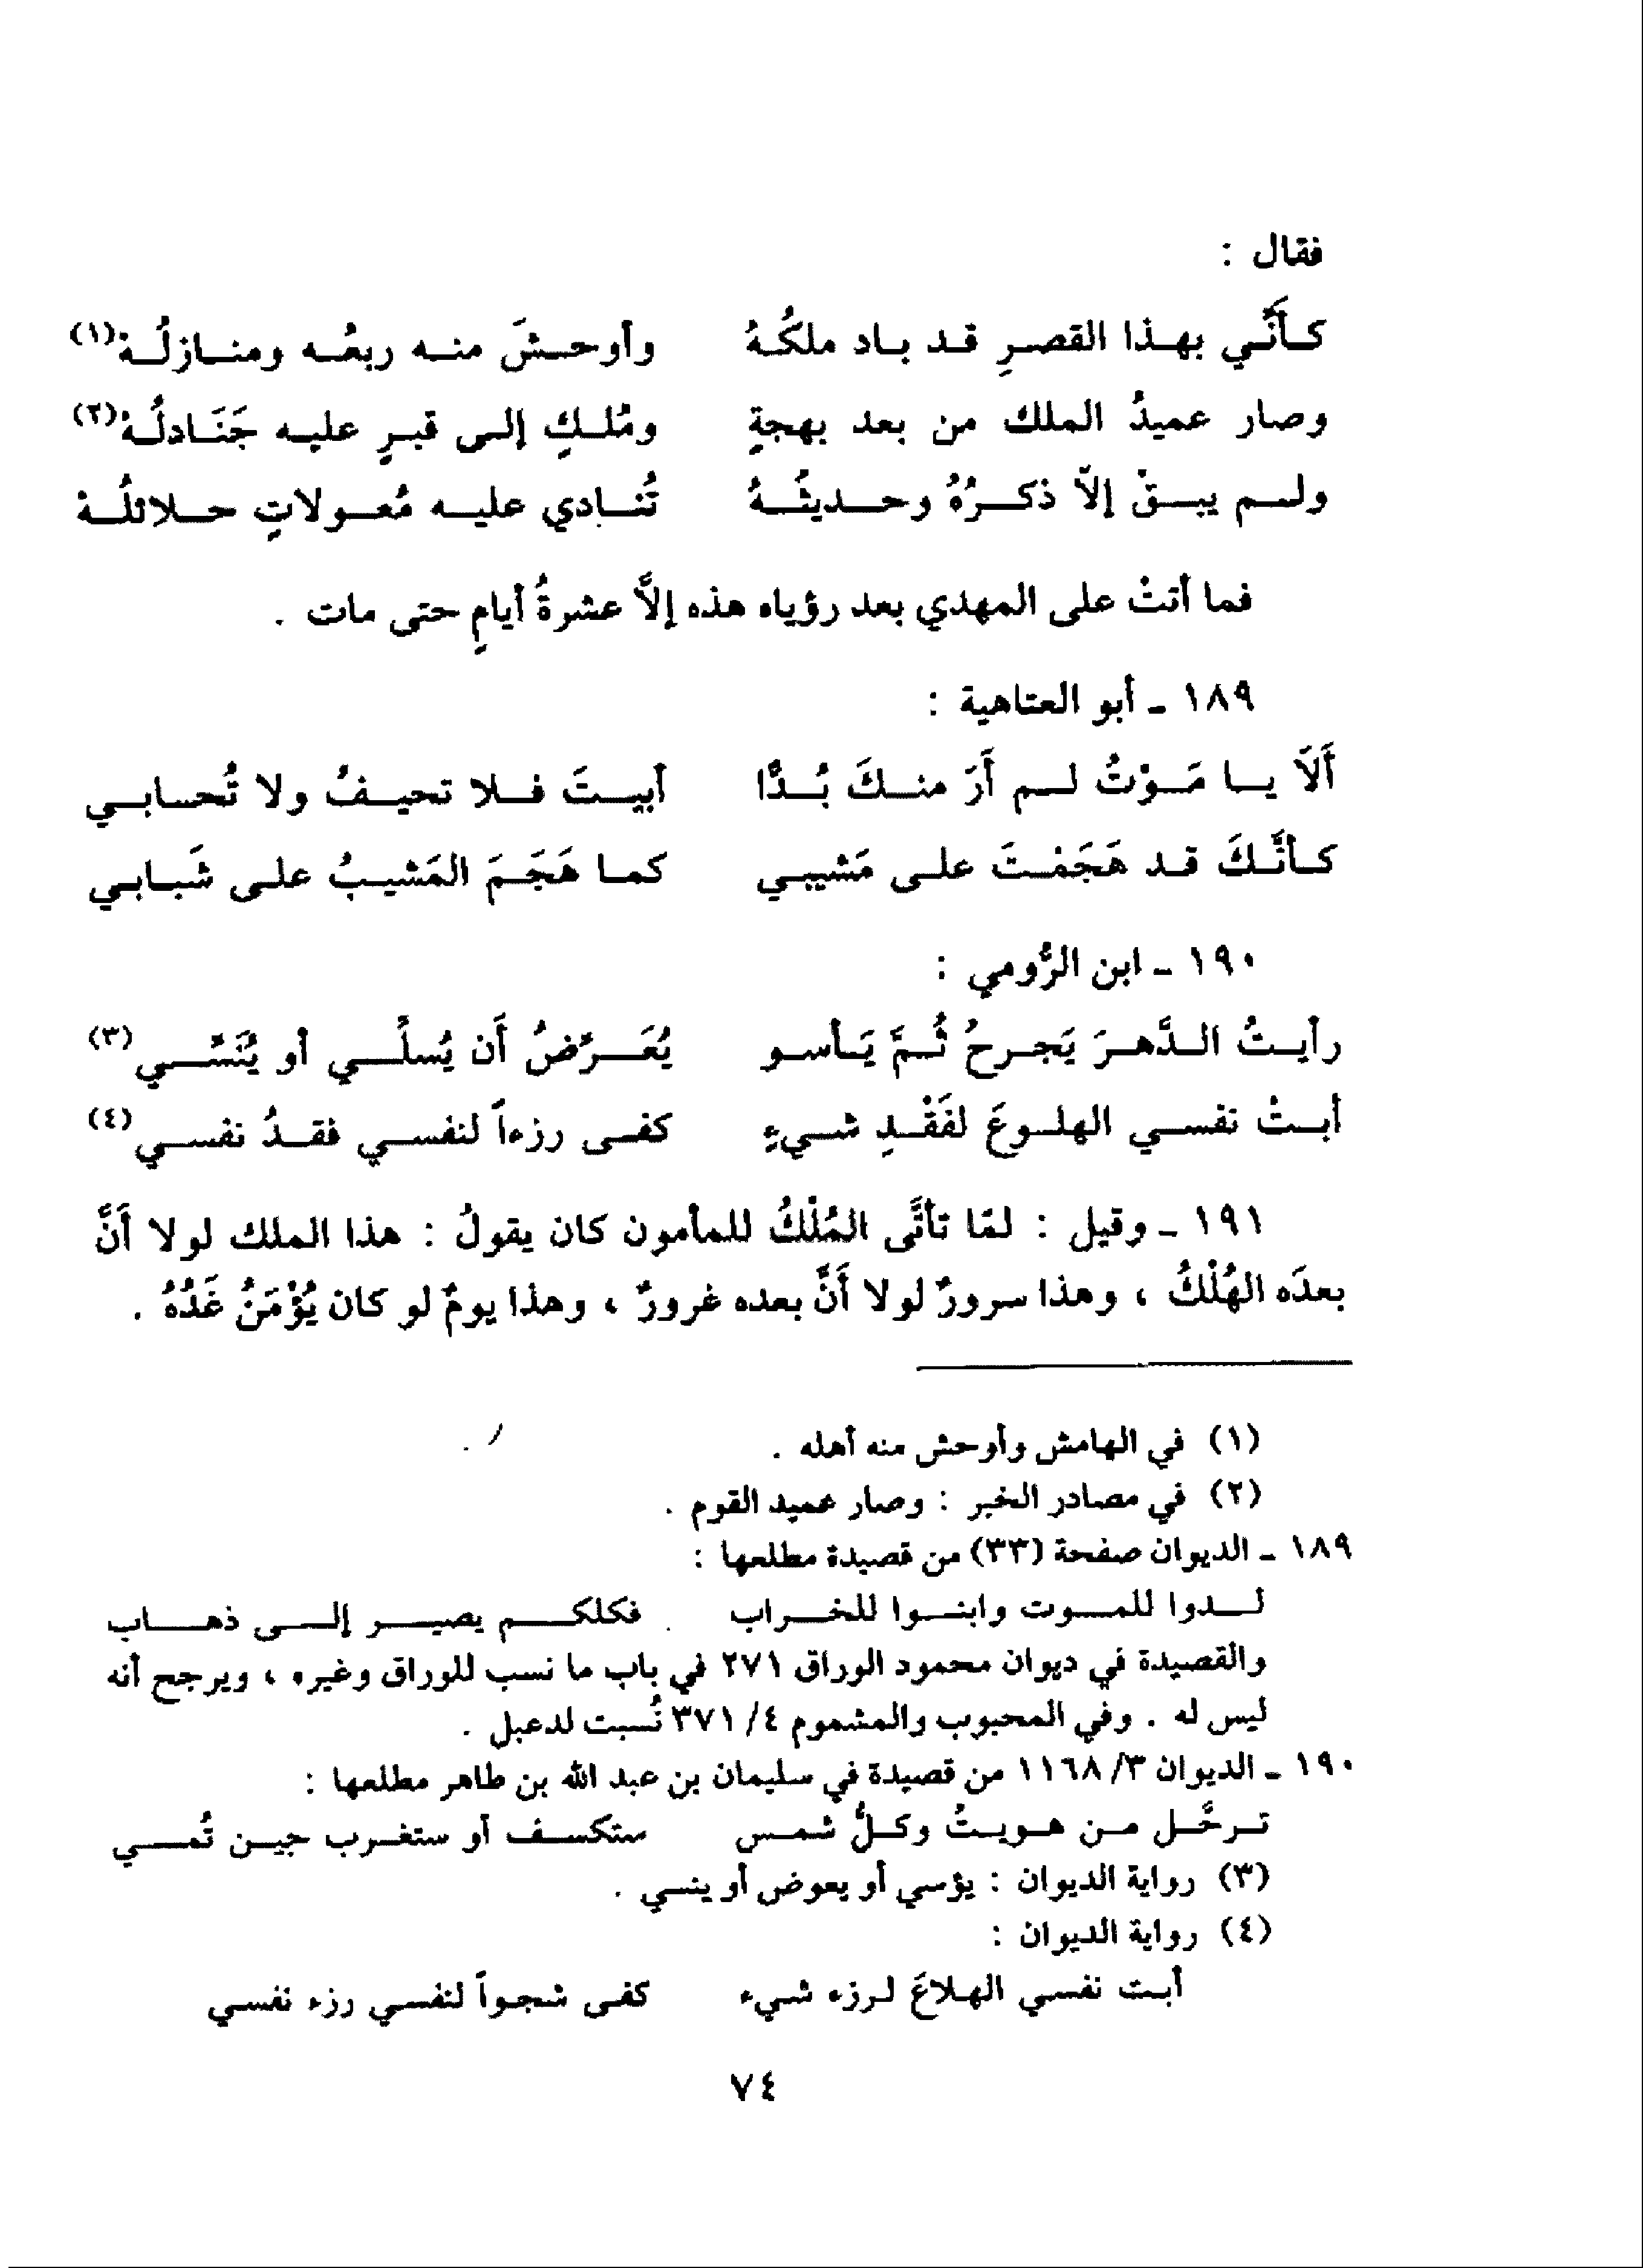 فقال :
كأنَّي بهذا القصرِ قد باد ملكُهُ وأوحشَ منه ربعُه ومنازلُهْ(١)
وصار عميدُ الملك من بعد بهجةٍ ومُلكٍ إلى قبرٍ عليه جَنَادلُهْ(٢)
ولم يبقْ إلاّ ذكرُهُ وحديثُهُ تُنادي عليه مُعولاتٍ حلائلُهْ
فما أتتْ على المهدي بعد رؤياه هذه إلاَّ عشرةُ أيامٍ حتى مات .
١٨٩ ـ أبو العتاهية :
أَلاَ يا مَوْتُ لم أَرَ منكَ بُدًّا أبيتَ فلا تحيفُ ولا تُحابي
كأنَّكَ قد هَجَمْتَ على مَشيبي كما هَجَمَ المَشيبُ على شَبابي
١٩٠ ـ ابن الرُّومي :
رأيتُ الدَّهرَ يَجرحُ ثُمَّ يَأسو يُعَرِّضُ أَن يُسلِّي أو يُنَسِّي(٣)
أبتْ نفسي الهلوعَ لفَقْدِ شيءٍ كفى رزءاً لنفسي فقدُ نفسي(٤)
١٩١ ـ وقيل : لمّا تأتَّى المُلْكُ للمأمون كان يقولُ : هذا الملك لولا أَنَّ
بعدَه الهُلْكُ ، وهذا سرورٌ لولا أَنَّ بعده غرورٌ ، وهذا يومٌ لو كان يُؤْمَنُ غَدُهُ .
(١) في الهامش وأوحش منه أهله .
(٢) في مصادر الخبر : وصار عميد القوم .
١٨٩ ـ الديوان صفحة (٣٣) من قصيدة مطلعها :
لدوا للموت وابنوا للخراب فكلكم يصير إلى ذهاب
والقصيدة في ديوان محمود الوراق ٢٧١ في باب ما نسب للوراق وغيره ، ويرجح أنه
ليس له . وفي المحبوب والمشموم ٤/ ٣٧١ نُسبت لدعبل .
١٩٠ ـ الديوان ٣/ ١١٦٨ من قصيدة في سليمان بن عبد الله بن طاهر مطلعها :
ترحَّل من هويتُ وكلُّ شمس ستكسف أو ستغرب حين تُمسي
(٣) رواية الديوان : يؤسي أو يعوض أو ينسي .
(٤) رواية الديوان :
أبت نفسي الهلاعَ لرزء شيء كفى شجواً لنفسي رزء نفسي
٧٤